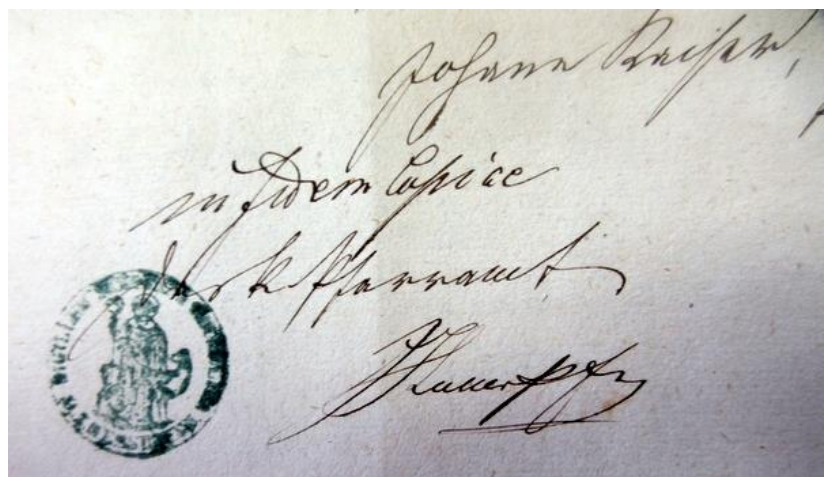 Johann Kaiser,
in fidem Copiae
das k. Pfarramt
SIGILLUM